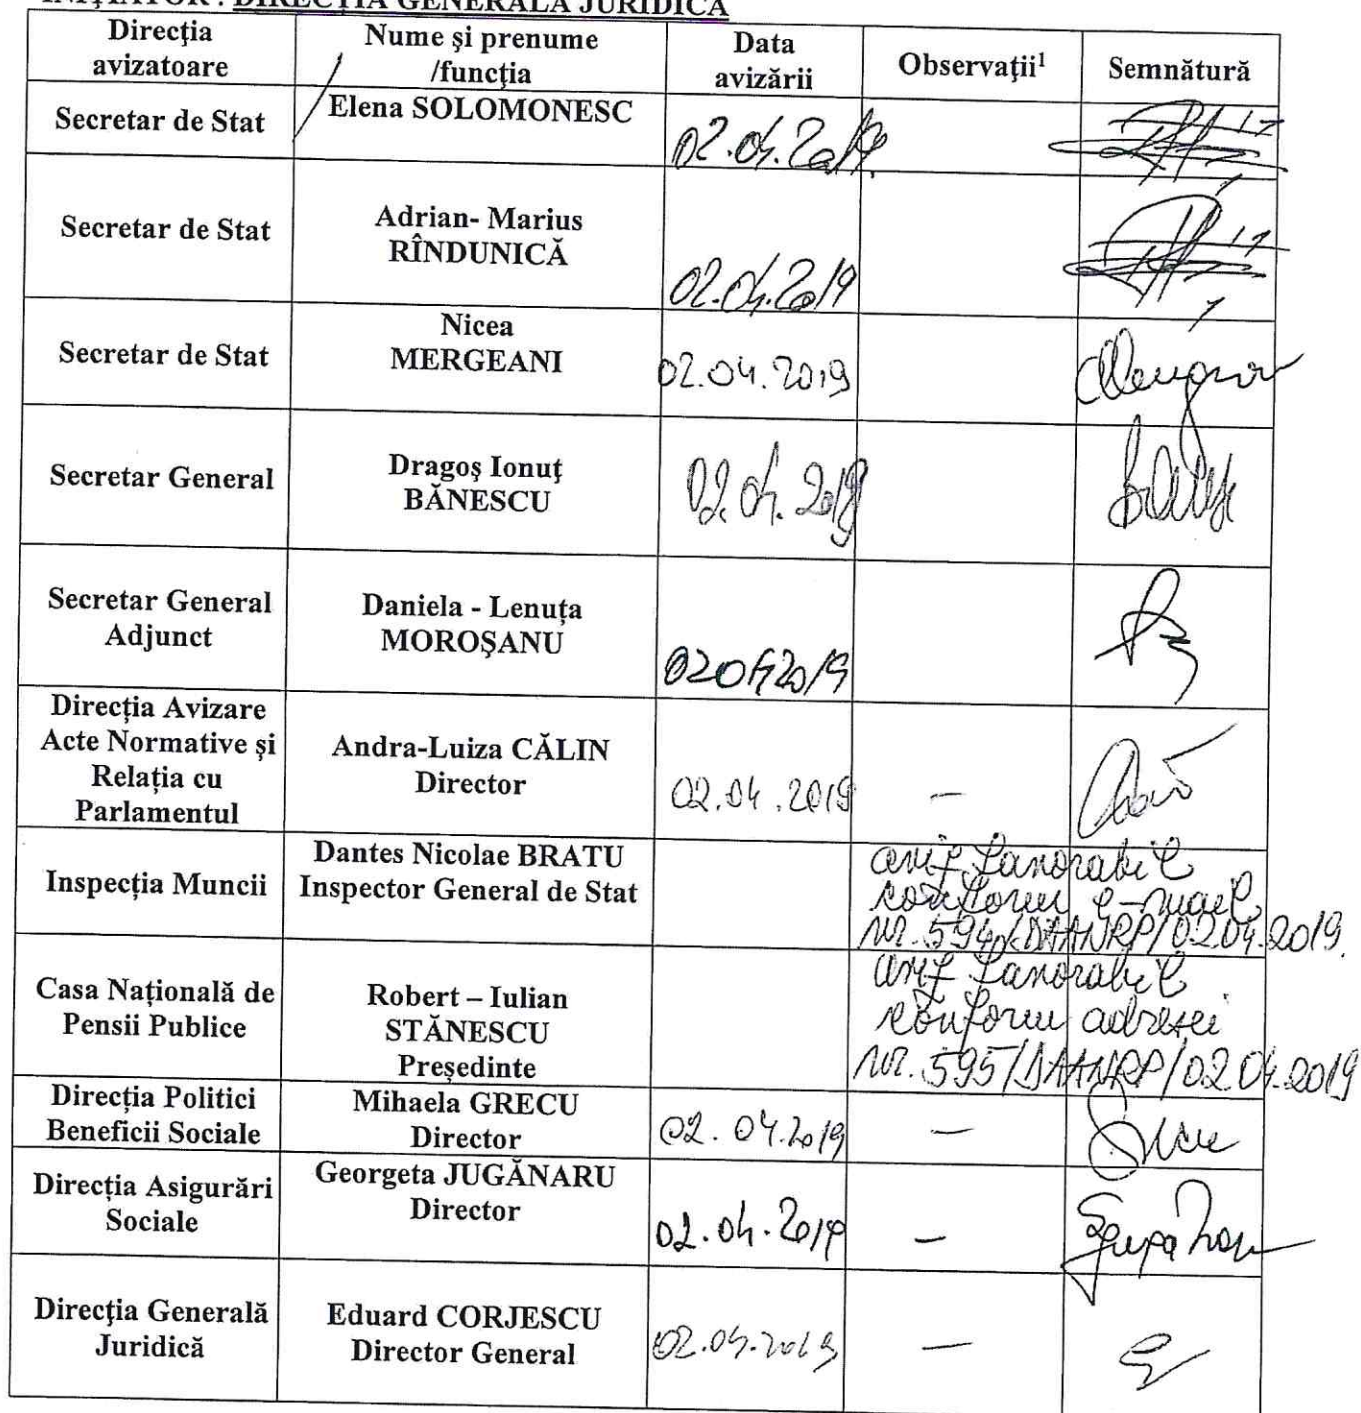 INIŢIATOR : DIRECŢIA GENERALĂ JURIDICĂ
Direcţia avizatoare
Nume şi prenume /funcţia
Data avizării
Observaţii¹
Semnătură
Secretar de Stat
Elena SOLOMONESC
02.04.2019
Secretar de Stat
Adrian- Marius
RÎNDUNICĂ
02.04.2019
Secretar de Stat
Nicea
MERGEANI
02.04.2019
Secretar General
Dragoş Ionuţ
BĂNESCU
02.04.2019
Secretar General
Adjunct
Daniela - Lenuța
MOROŞANU
02042019
Direcția Avizare
Acte Normative și
Relația cu
Parlamentul
Andra-Luiza CĂLIN
Director
02.04.2019
—
Inspecția Muncii
Dantes Nicolae BRATU
Inspector General de Stat
aviz favorabil
conform e-mail
nr. 594/DAANRP/02.04.2019.
Casa Națională de
Pensii Publice
Robert – Iulian
STĂNESCU
Președinte
aviz favorabil
conform adresei
nr. 595/DAANRP/02.04.2019
Direcția Politici
Beneficii Sociale
Mihaela GRECU
Director
02.04.2019
—
Direcția Asigurări
Sociale
Georgeta JUGĂNARU
Director
02.04.2019
—
Direcţia Generală
Juridică
Eduard CORJESCU
Director General
02.04.2019
—